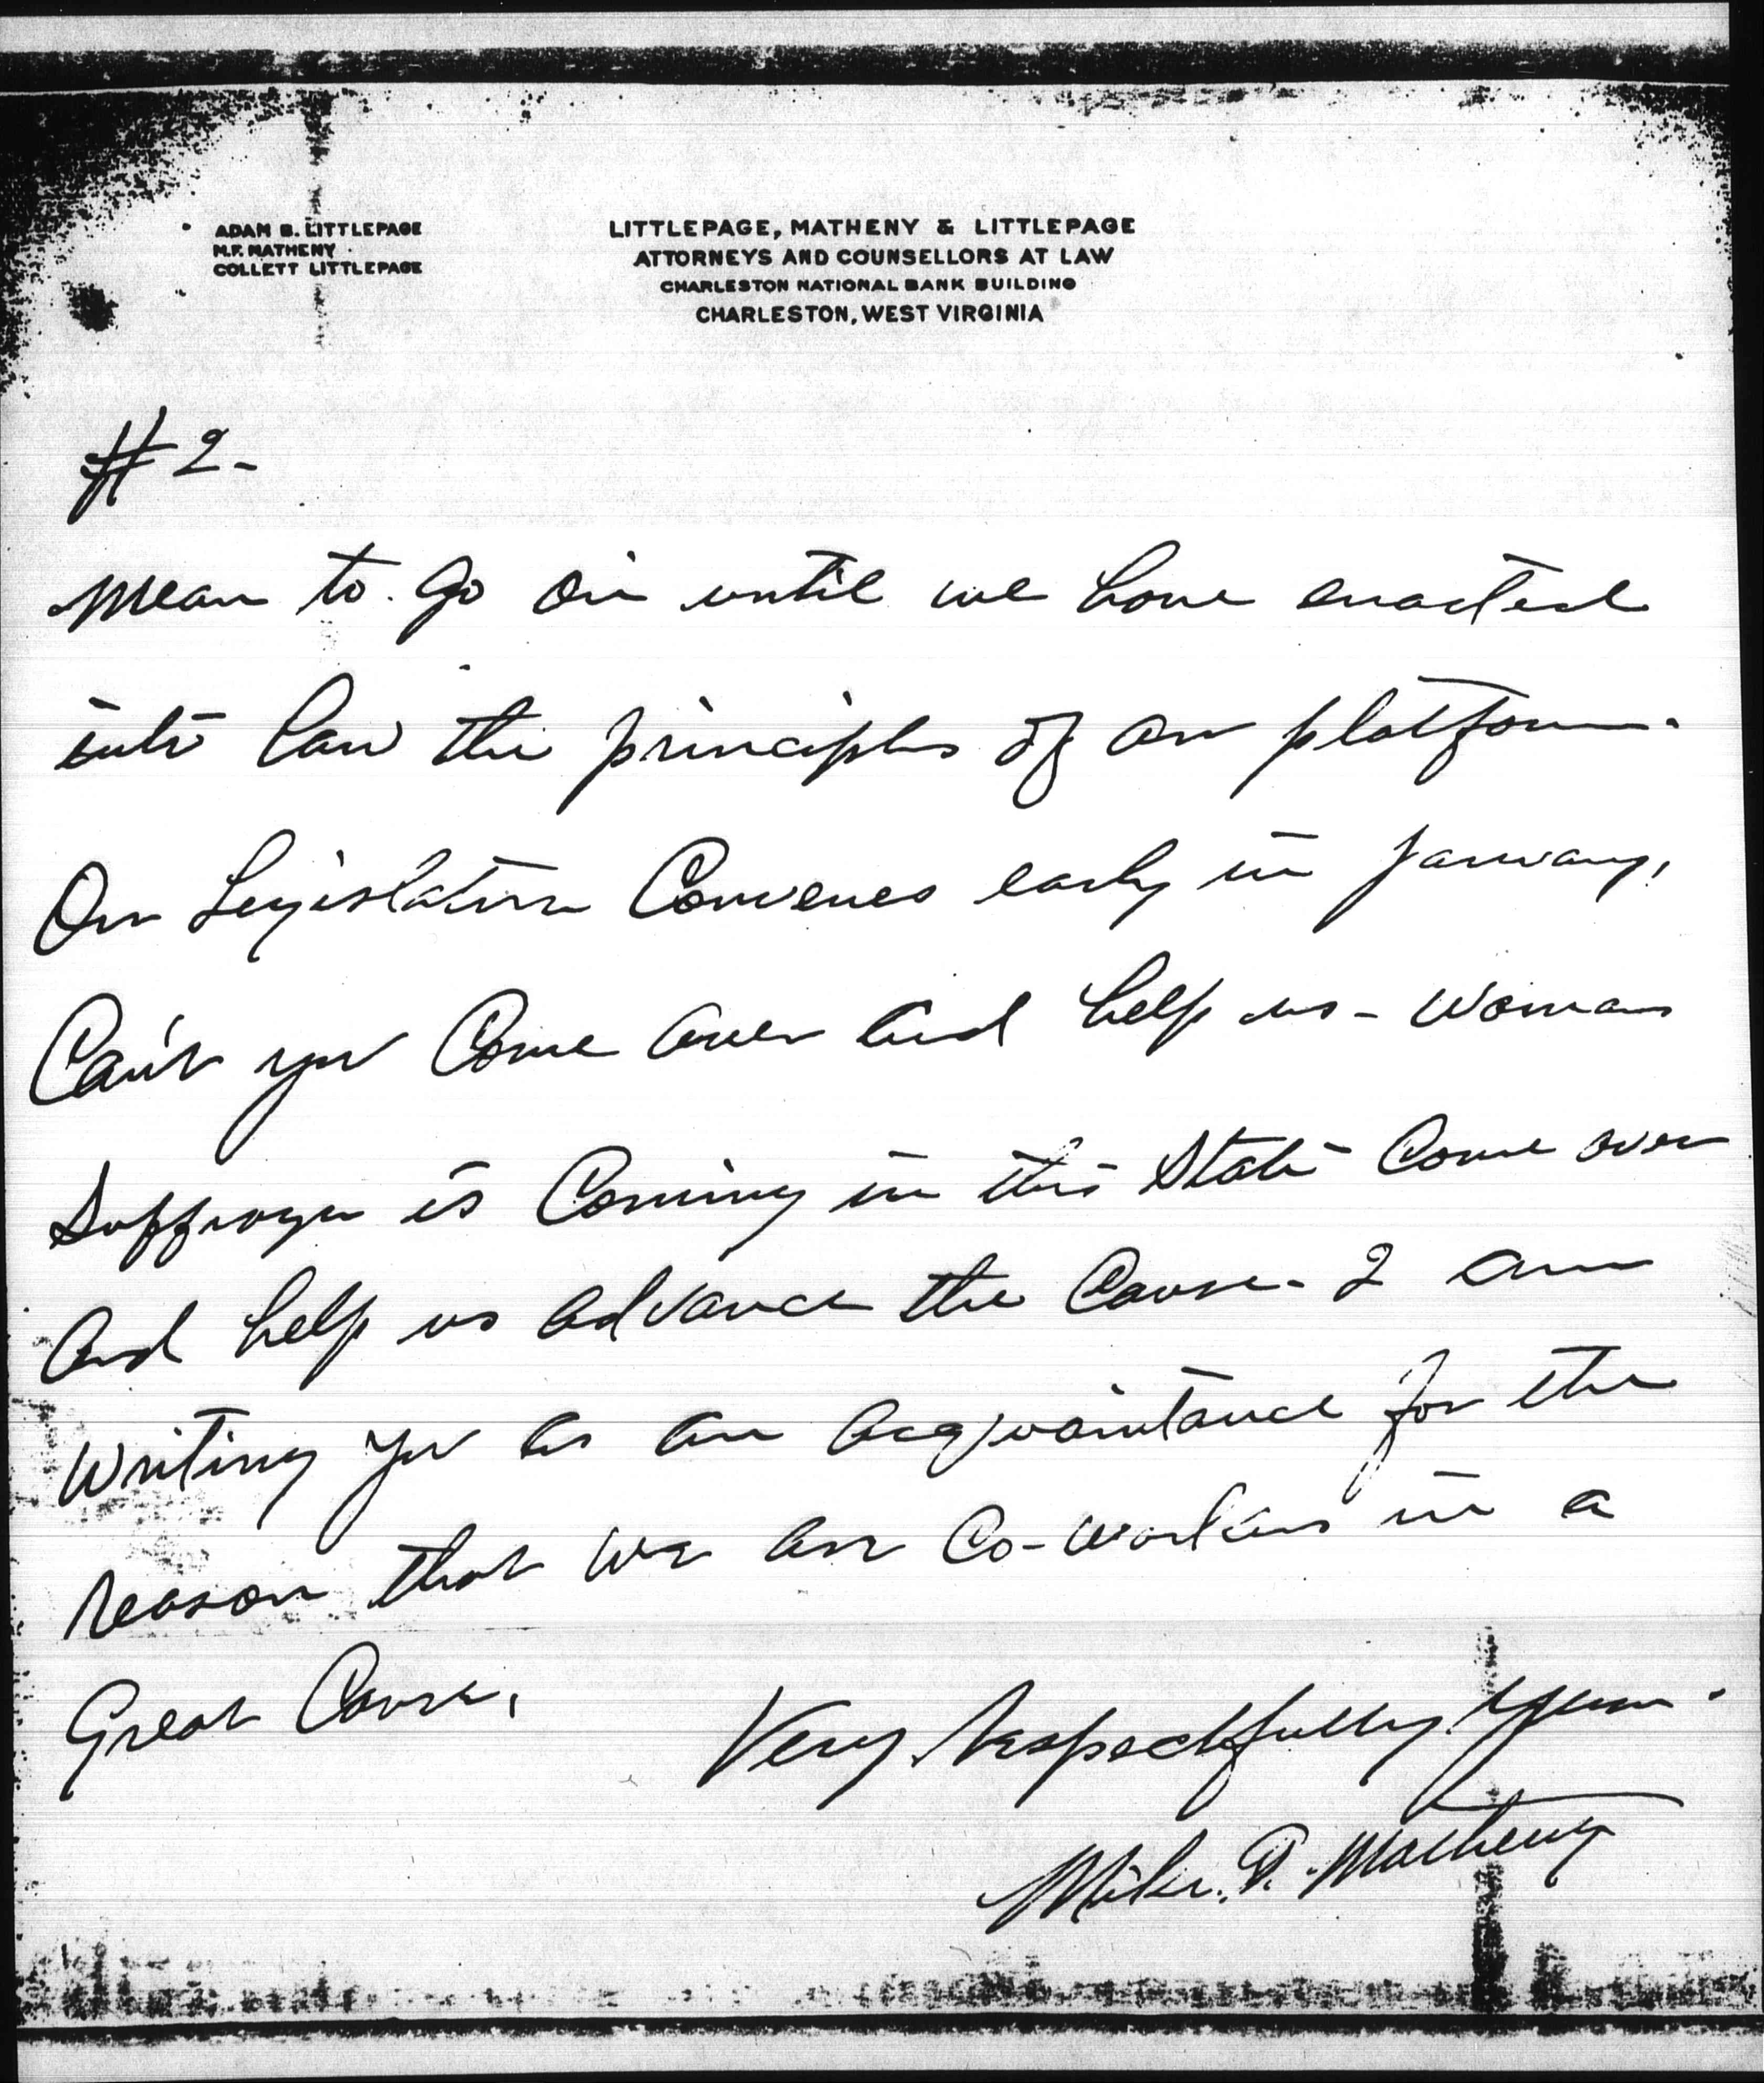 ADAM B. LITTLEPAGE
M.F. MATHENY
COLLETT LITTLEPAGE
LITTLEPAGE, MATHENY & LITTLEPAGE
ATTORNEYS AND COUNSELLORS AT LAW
CHARLESTON NATIONAL BANK BUILDING
CHARLESTON, WEST VIRGINIA
#2-
mean to go on until we have enacted
into law the principles of our platform.
Our Legislature Convenes early in January,
Can't you Come over and help us - Woman
Suffrage is Coming in this State Come over
and help us advance the Cause - I am
writing you as an acquaintance for the
reason that we are Co-workers in a
Great Cause,
Very respectfully yours.
Matheny